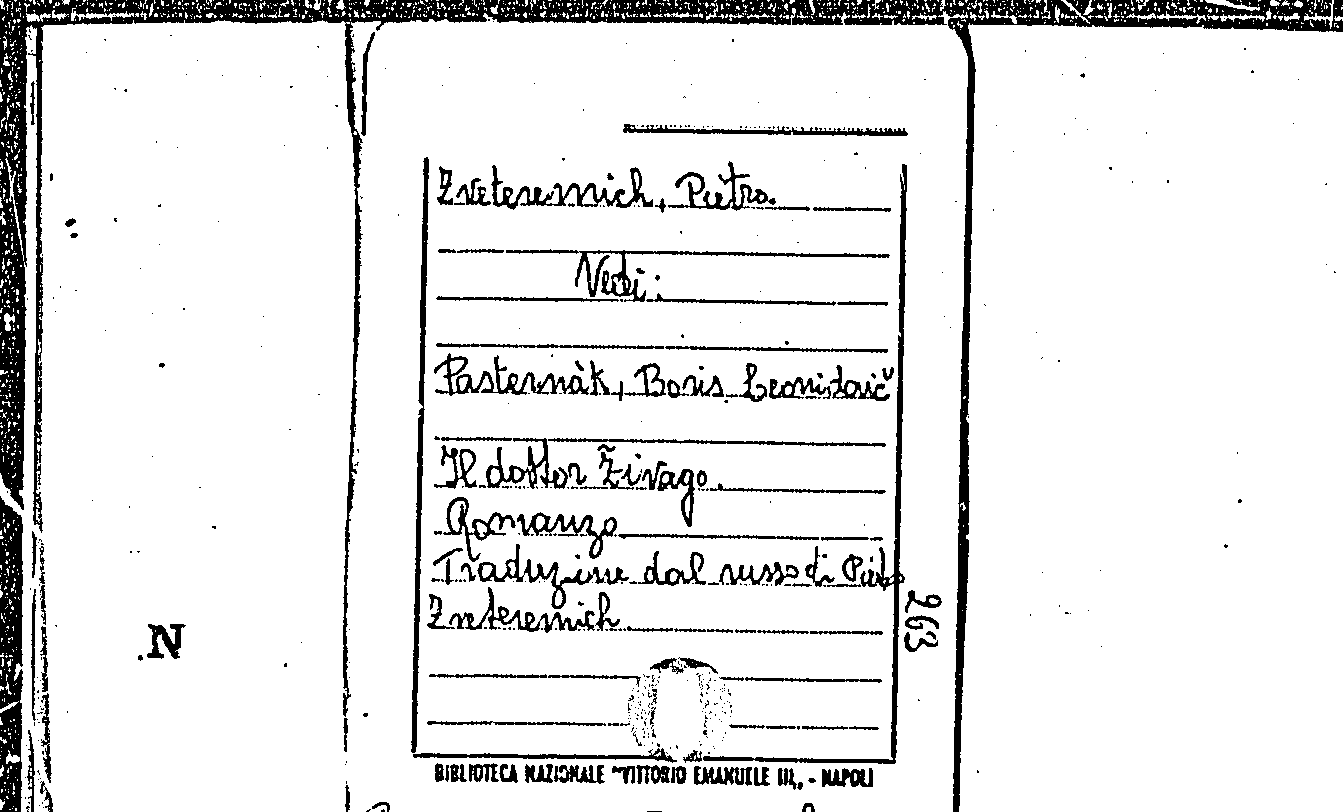 Zveteremich, Pietro.
Vedi:
Pasternàk, Boris Leonidovič
Il dottor Živago.
Romanzo
Traduzine dal russo di Pietro
Zveteremich.
263
.N
BIBLIOTECA NAZIONALE "VITTORIO EMANUELE III„ - NAPOLI